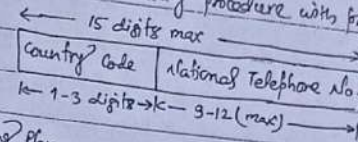 procedure with
15 digits max
Country Code National Telephone No.
1-3 digits 9-12 (max)